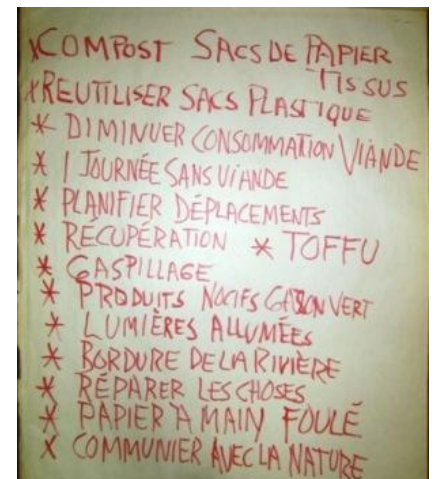 *COMPOST SACS DE PAPIER
TISSUS
*REUTILISER SACS PLASTIQUE
* DIMINUER CONSOMMATION VIANDE
* 1 JOURNÉE SANS VIANDE
* PLANIFIER DÉPLACEMENTS
* RÉCUPÉRATION * TOFFU
* GASPILLAGE
* PRODUITS NOCIFS GAZON VERT
* LUMIÈRES ALLUMÉES
* BORDURE DE LA RIVIÈRE
* RÉPARER LES CHOSES
* PAPIER À MAIN FOULÉ
* COMMUNIER AVEC LA NATURE